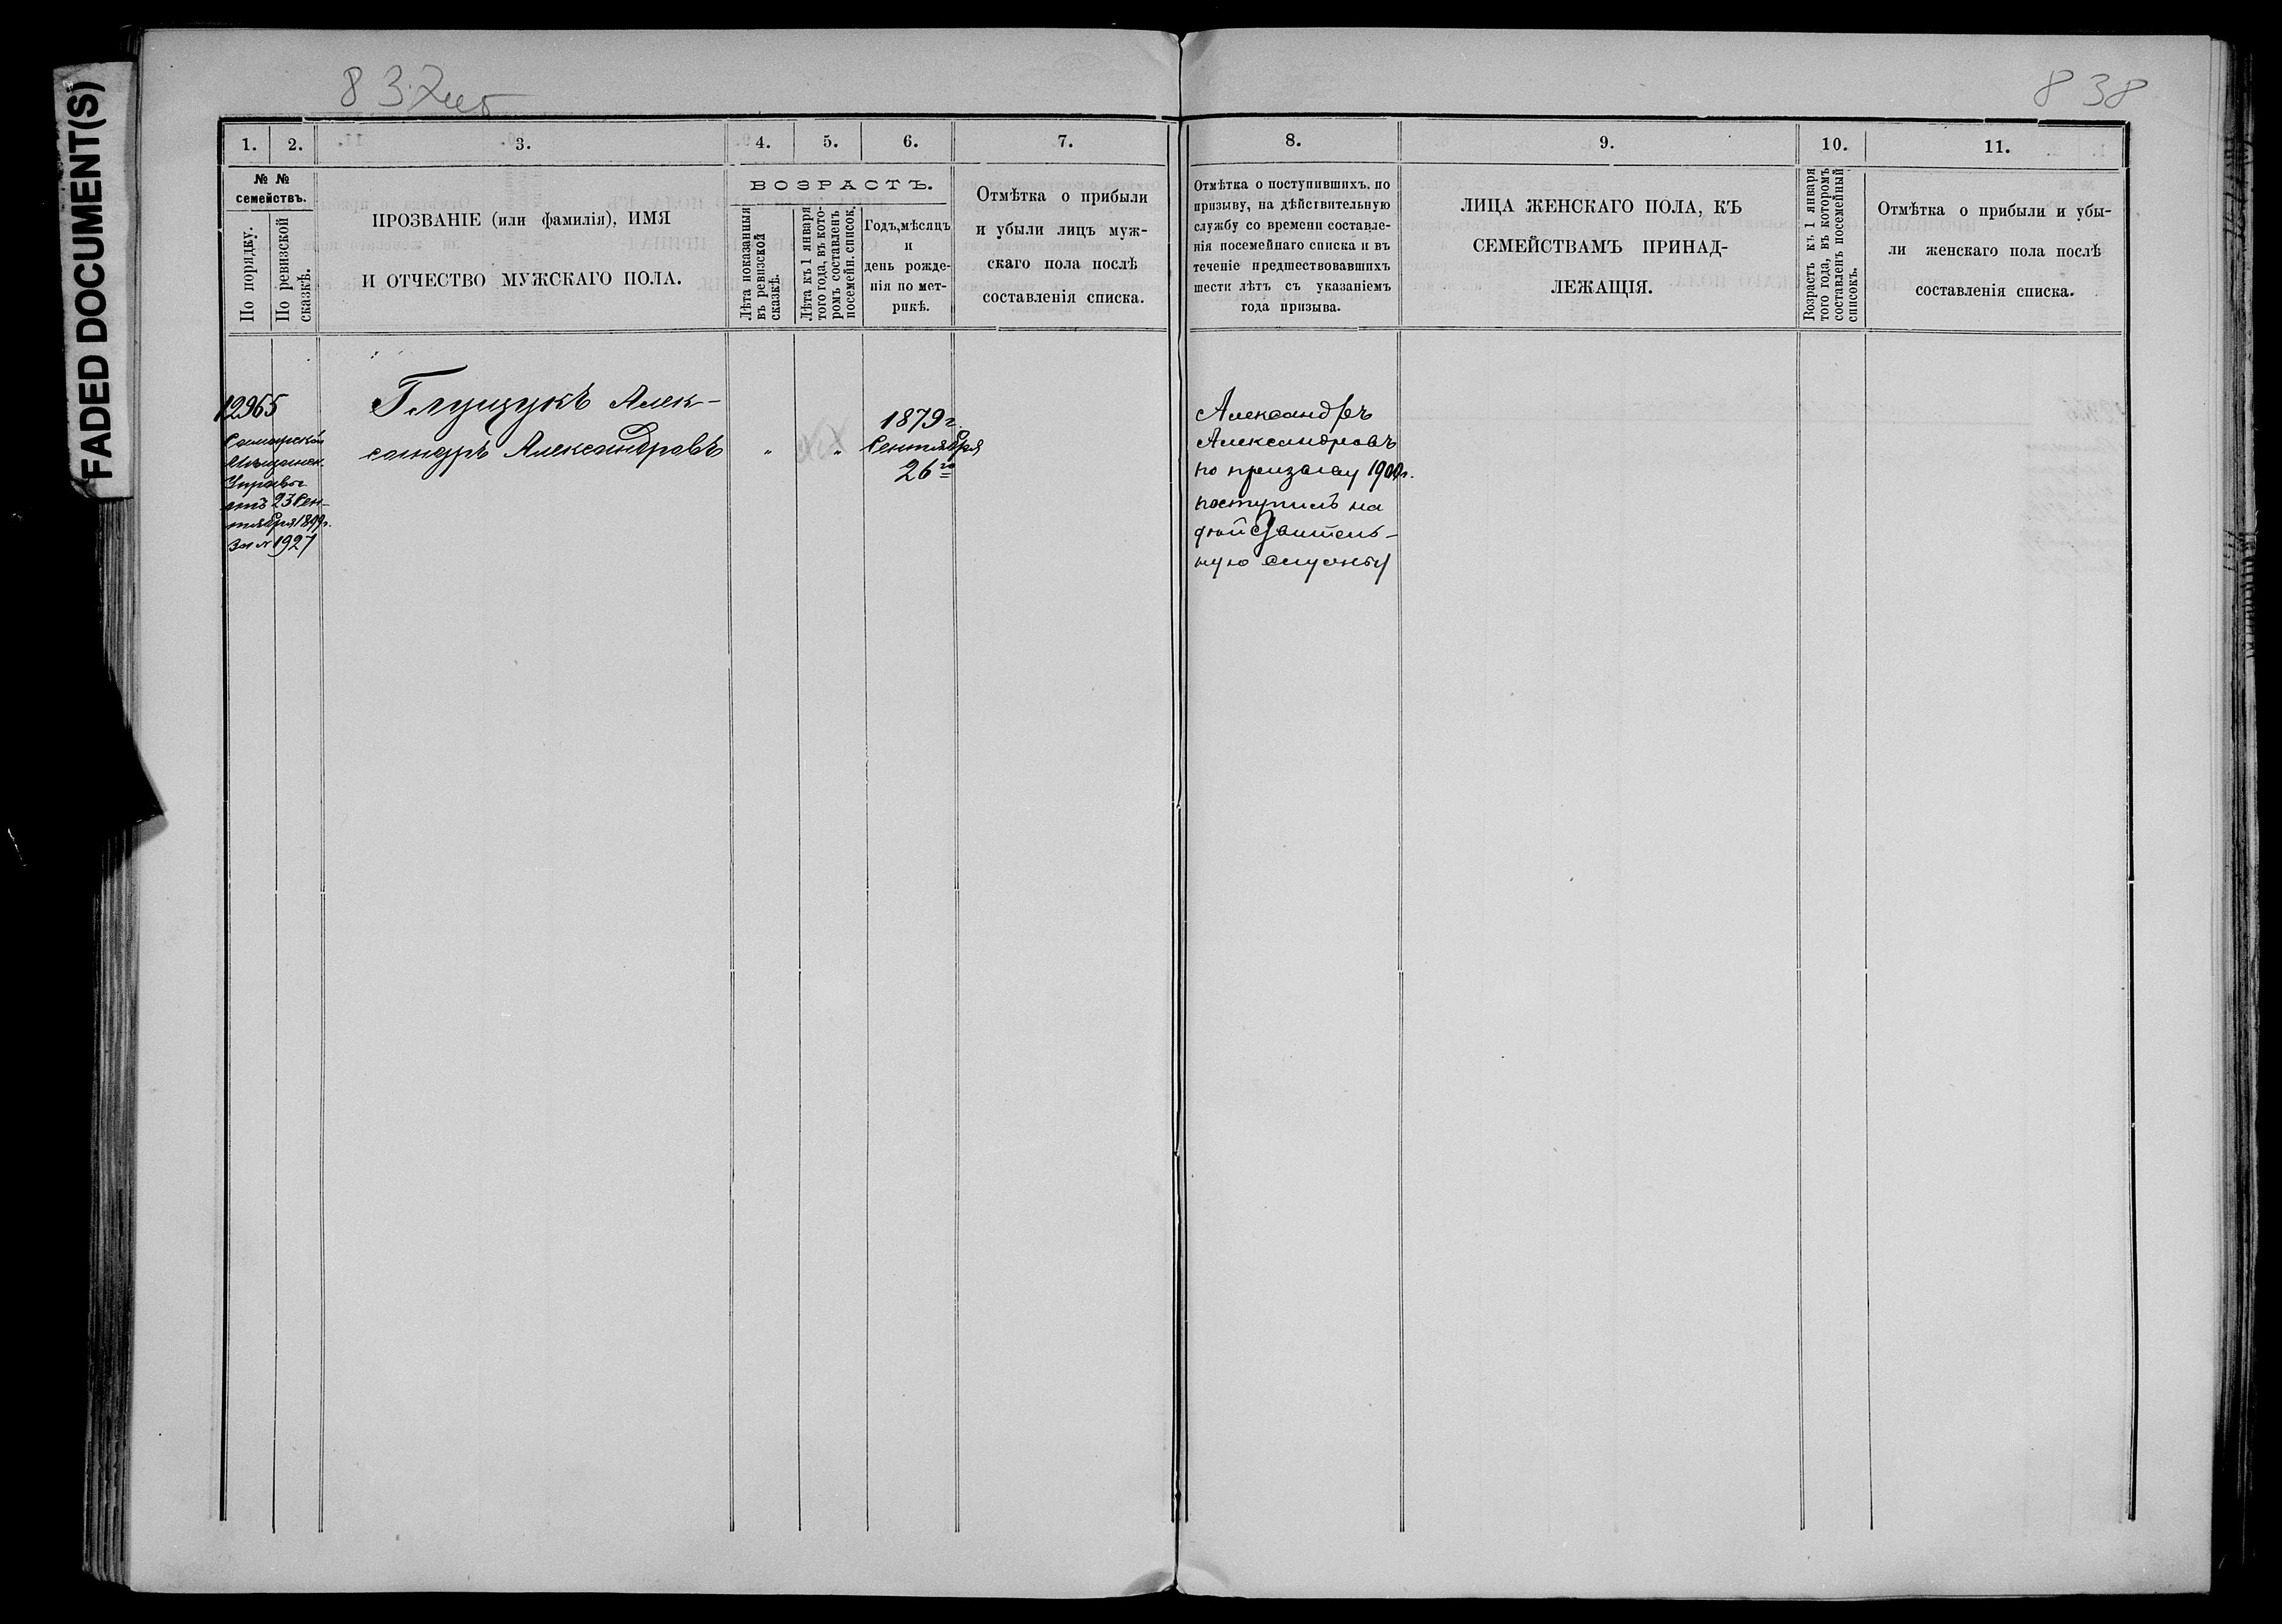 FADED DOCUMENT(S)
838
1.
2.
3.
4.
5.
6.
7.
8.
9.
10.
11.
№ №
семействъ.
По порядку.
По ревизской
сказкѣ.
ПРОЗВАНІЕ (или фамилія), ИМЯ
И ОТЧЕСТВО МУЖСКАГО ПОЛА.
ВОЗРАСТЪ.
Лѣта показанныя
въ ревизской
сказкѣ.
Лѣта къ 1 января
того года, въ кото-
ромъ составленъ
посемейн. список.
Годъ, мѣсяцъ
и
день рожде-
нія по мет-
рикѣ.
Отмѣтка о прибыли
и убыли лицъ муж-
скаго пола послѣ
составленія списка.
Отмѣтка о поступившихъ, по
призыву, на дѣйствительную
службу со времени составле-
нія посемейнаго списка и въ
теченіе предшествовавшихъ
шести лѣтъ съ указаніемъ
года призыва.
ЛИЦА ЖЕНСКАГО ПОЛА, КЪ
СЕМЕЙСТВАМЪ ПРИНАД-
ЛЕЖАЩІЯ.
Возрастъ къ 1 января
того года, въ которомъ
составленъ посемейный
списокъ.
Отмѣтка о прибыли и убы-
ли женскаго пола послѣ
составленія списка.
12965
Самарской
Мѣщанск.
Управы
отъ 23 Сен-
тября 1899г.
за № 1927
Глущукъ Алек-
сандръ Александровъ
"
"
1879 г.
Сентября
26го
Александръ
Александровъ
по призыву 1900г.
поступилъ на
дѣйствитель-
ную службу